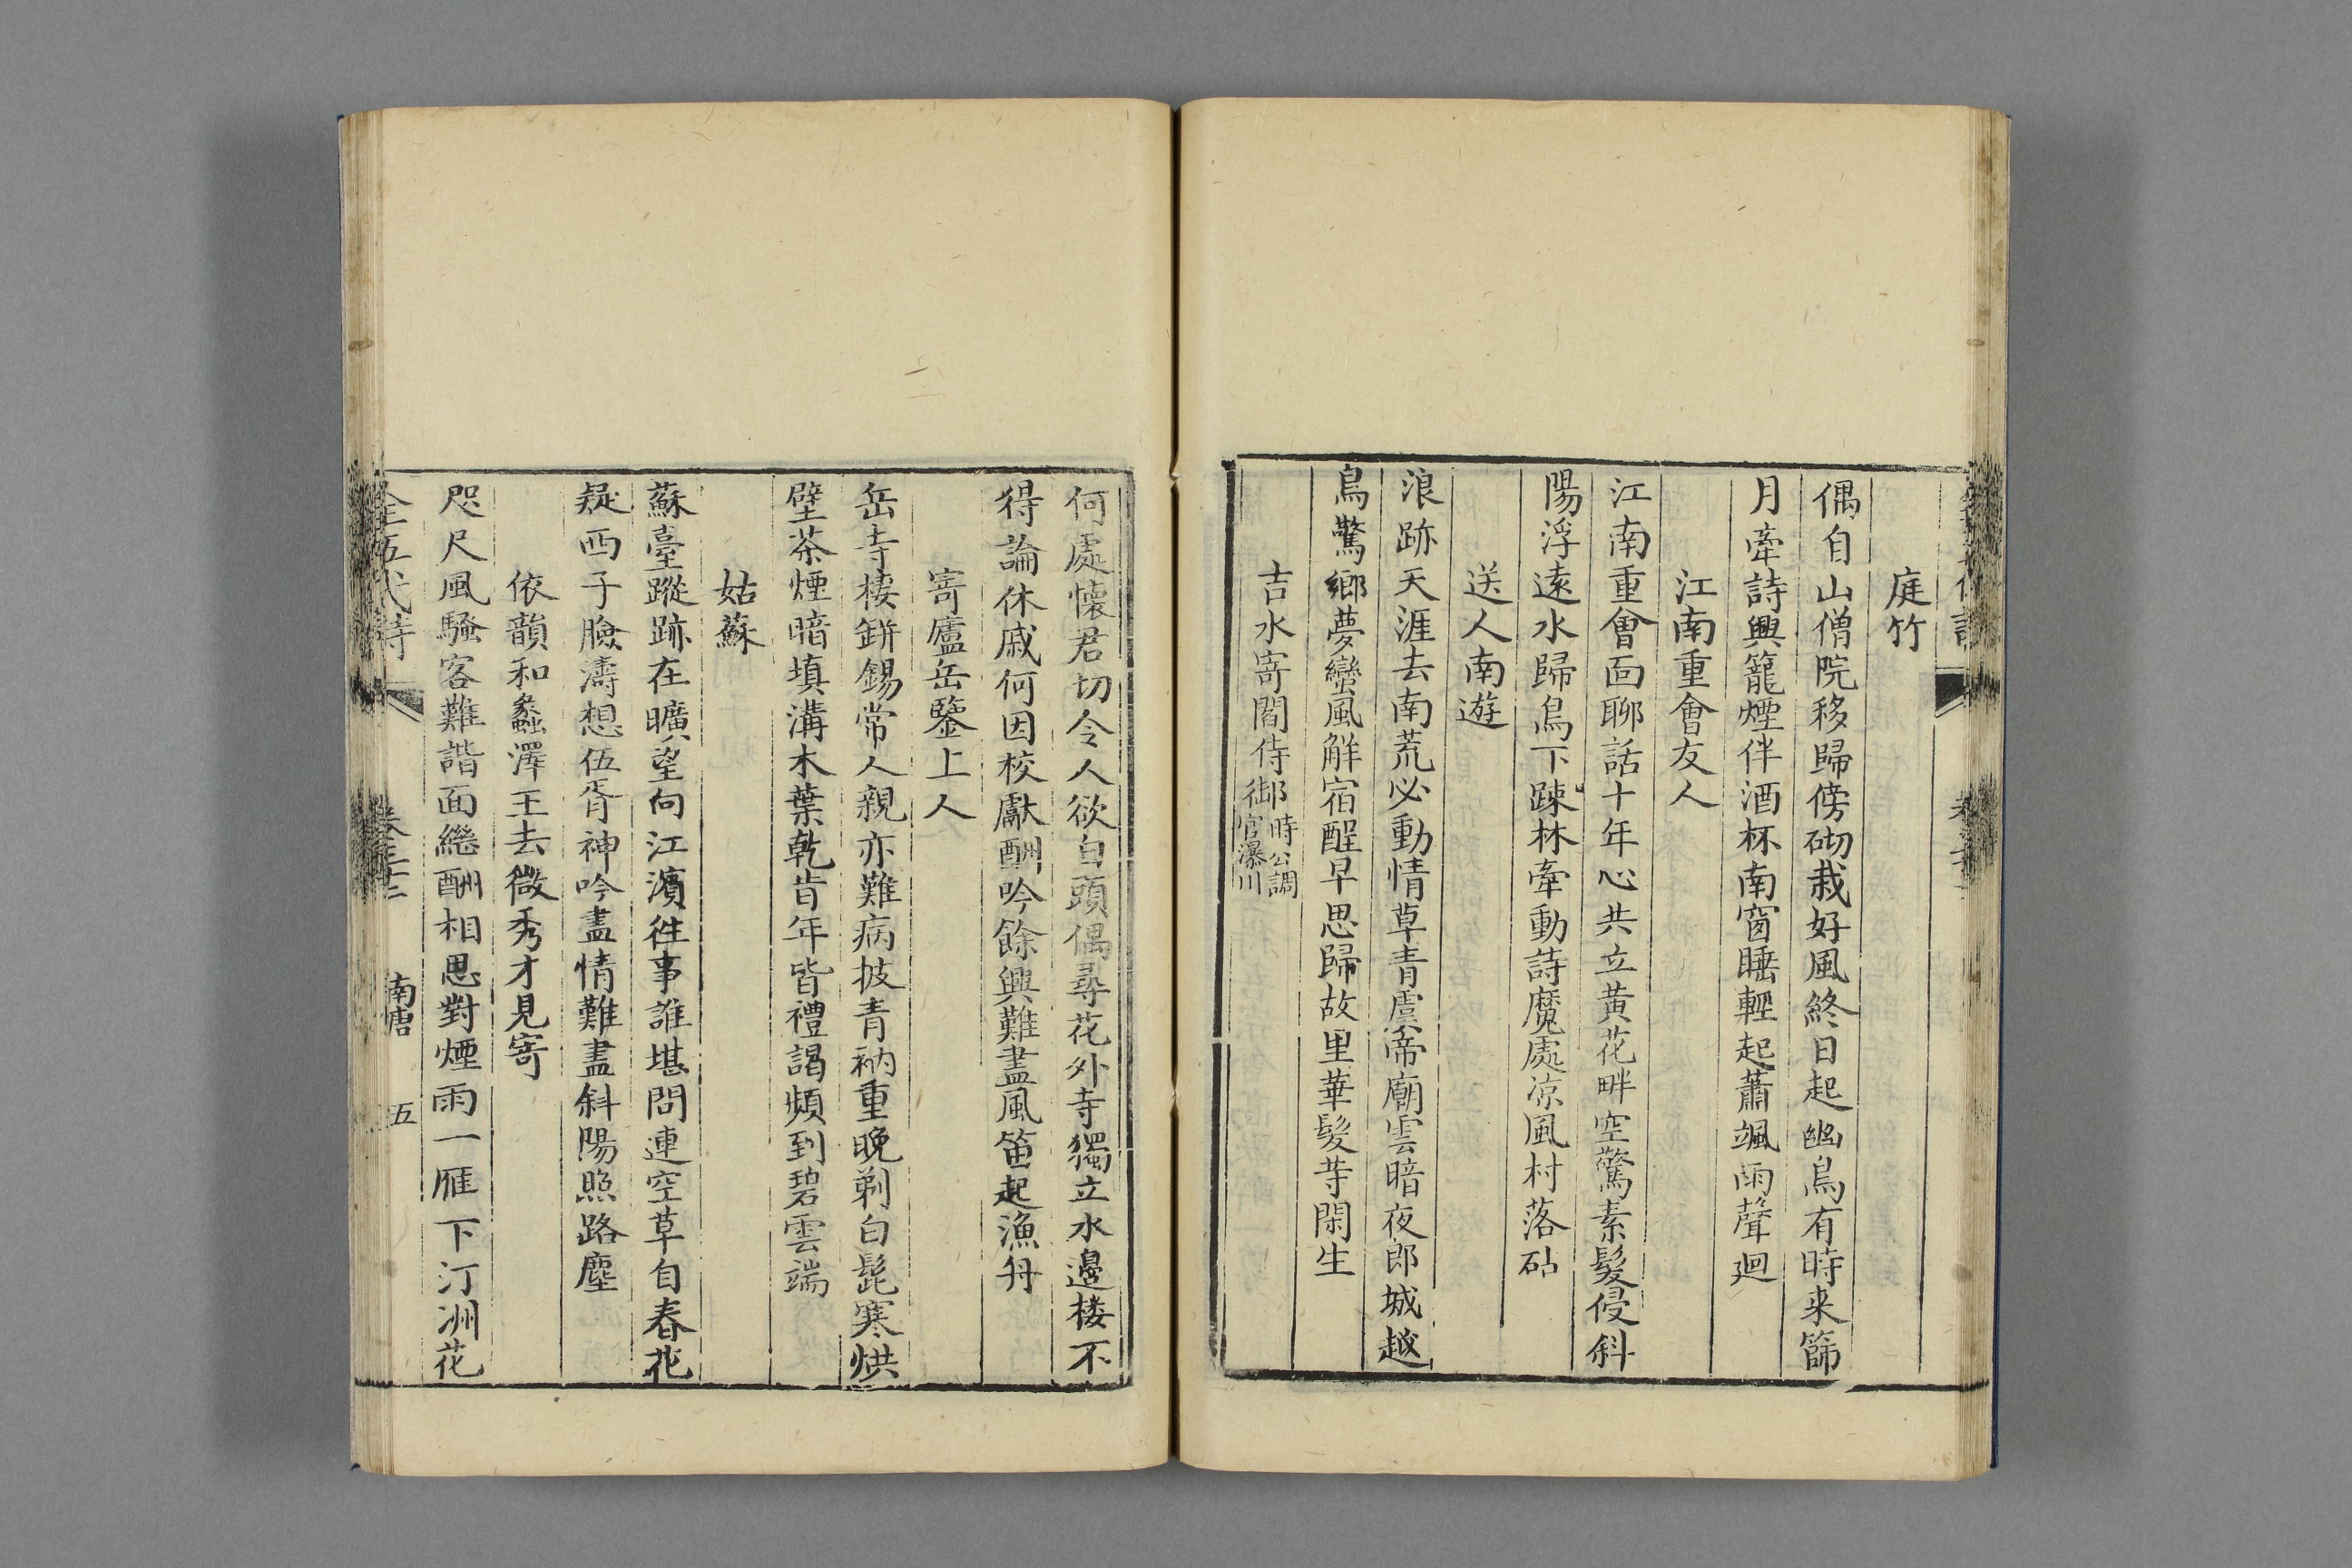 庭竹
偶自山僧院移歸傍砌栽好風終日起幽鳥有時来篩
月牽詩興籠煙伴酒杯南窗睡輕起蕭颯雨聲廻
江南重會友人
江南重會面聊話十年心共立黃花畔空驚素髮侵斜
陽浮遠水歸鳥下踈林牽動詩魔處凉風村落砧
送人南遊
浪跡天涯去南荒必動情草青虞帝廟雲暗夜郎城越
鳥驚鄉夢蠻風解宿酲早思歸故里華髮等閑生
吉水寄閻侍御時公調官瀑川
何處懷君切令人欲白頭偶尋花外寺獨立水邊楼不
得論休戚何因校獻酬吟餘興難盡風笛起漁舟
寄廬岳鑒上人
岳寺棲缾錫常人親亦難病披青衲重晚剃白髭寒烘
壁茶煙暗填溝木葉乾昔年皆禮謁頻到碧雲端
姑蘇
蘇臺蹤跡在曠望向江濱徃事誰堪問連空草自春花
疑西子臉濤想伍胥神吟盡情難盡斜陽照路塵
依韻和蠡澤王去微秀才見寄
咫尺風騷客難諧面繼酬相思對煙雨一雁下汀洲花
全五代詩
南唐
五